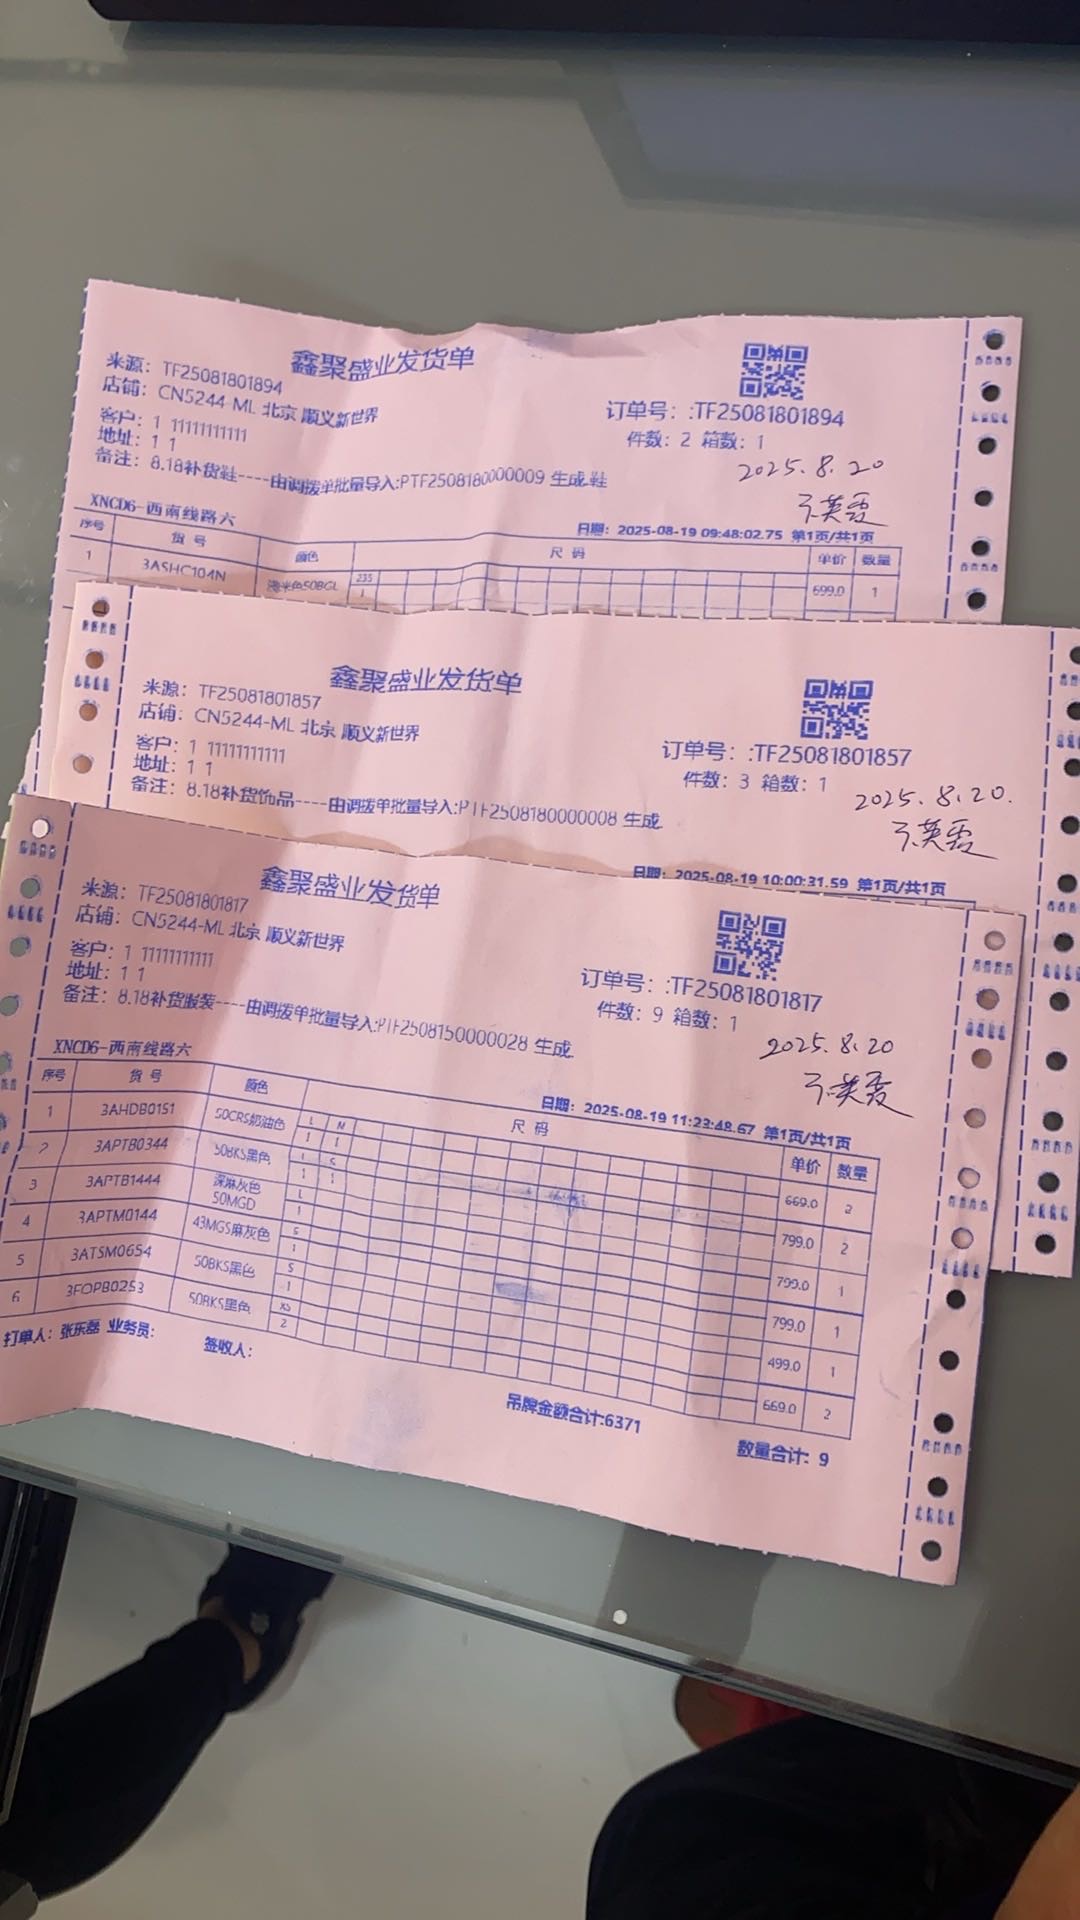 鑫聚盛业发货单
来源：TF25081801894
店铺：CN5244-ML 北京 顺义新世界
订单号：:TF25081801894
客户：1 11111111111
件数：2 箱数：1
地址：1 1
2025.8.20
备注：8.18补货鞋----由调拨单批量导入:PTF2508180000009 生成.鞋
英霞
XNCD6-西南线路六
日期：2025-08-19 09:48:02.75 第1页/共1页
序号 货号 颜色 尺码 单价 数量
1 3ASHC104N 浅米色50BGL 235 699.0 1
1
鑫聚盛业发货单
来源：TF25081801857
店铺：CN5244-ML 北京 顺义新世界
订单号：:TF25081801857
客户：1 11111111111
件数：3 箱数：1
地址：1 1
2025.8.20.
备注：8.18补货饰品----由调拨单批量导入:PTF2508180000008 生成.
英霞
日期：2025-08-19 10:00:31.59 第1页/共1页
鑫聚盛业发货单
来源：TF25081801817
店铺：CN5244-ML 北京 顺义新世界
订单号：:TF25081801817
客户：1 11111111111
件数：9 箱数：1
地址：1 1
2025.8.20
备注：8.18补货服装----由调拨单批量导入:PTF2508150000028 生成.
英霞
XNCD6-西南线路六
日期：2025-08-19 11:23:48.67 第1页/共1页
序号 货号 颜色 尺码 单价 数量
1 3AHDB0151 50CRS奶油色 L M 669.0 2
1 1
2 3APTB0344 50BKS黑色 L S 799.0 2
1 1
3 3APTB1444 深麻灰色50MGD L 799.0 1
1
4 3APTM0144 43MGS麻灰色 S 799.0 1
1
5 3ATSM0654 50BKS黑色 S 499.0 1
1
6 3FOPB0253 50BKS黑色 XS 669.0 2
2
打单人：张乐磊 业务员：
签收人：
吊牌金额合计:6371
数量合计：9